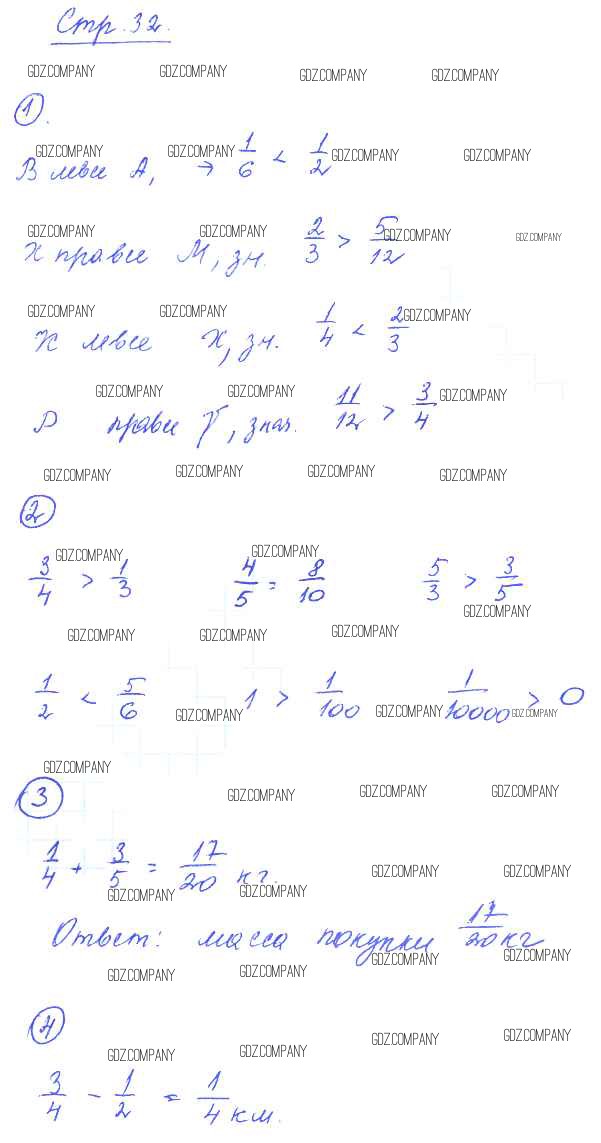 Стр. 32.
GDZ.COMPANY GDZ.COMPANY GDZ.COMPANY GDZ.COMPANY
1.
GDZ.COMPANY GDZ.COMPANY GDZ.COMPANY GDZ.COMPANY
В левее А, → 1/6 < 1/2
GDZ.COMPANY GDZ.COMPANY GDZ.COMPANY GDZ.COMPANY
Х правее М, зн. 2/3 > 5/12
GDZ.COMPANY GDZ.COMPANY GDZ.COMPANY
К левее Х, зн. 1/4 < 2/3
GDZ.COMPANY GDZ.COMPANY GDZ.COMPANY
правее У, знач. 11/12 > 3/4
GDZ.COMPANY GDZ.COMPANY GDZ.COMPANY GDZ.COMPANY
2
GDZ.COMPANY GDZ.COMPANY
3/4 > 1/3 4/5 = 8/10 5/3 > 3/5
GDZ.COMPANY
GDZ.COMPANY GDZ.COMPANY GDZ.COMPANY
1/2 < 5/6 1 > 1/100 1/10000 > 0
GDZ.COMPANY GDZ.COMPANY GDZ.COMPANY
GDZ.COMPANY
3
GDZ.COMPANY GDZ.COMPANY GDZ.COMPANY
1/4 + 3/5 = 17/20 кг.
GDZ.COMPANY GDZ.COMPANY
GDZ.COMPANY GDZ.COMPANY
Ответ: масса покупки 17/20 кг
GDZ.COMPANY GDZ.COMPANY
GDZ.COMPANY GDZ.COMPANY
4
GDZ.COMPANY GDZ.COMPANY GDZ.COMPANY GDZ.COMPANY
3/4 - 1/2 = 1/4 км.